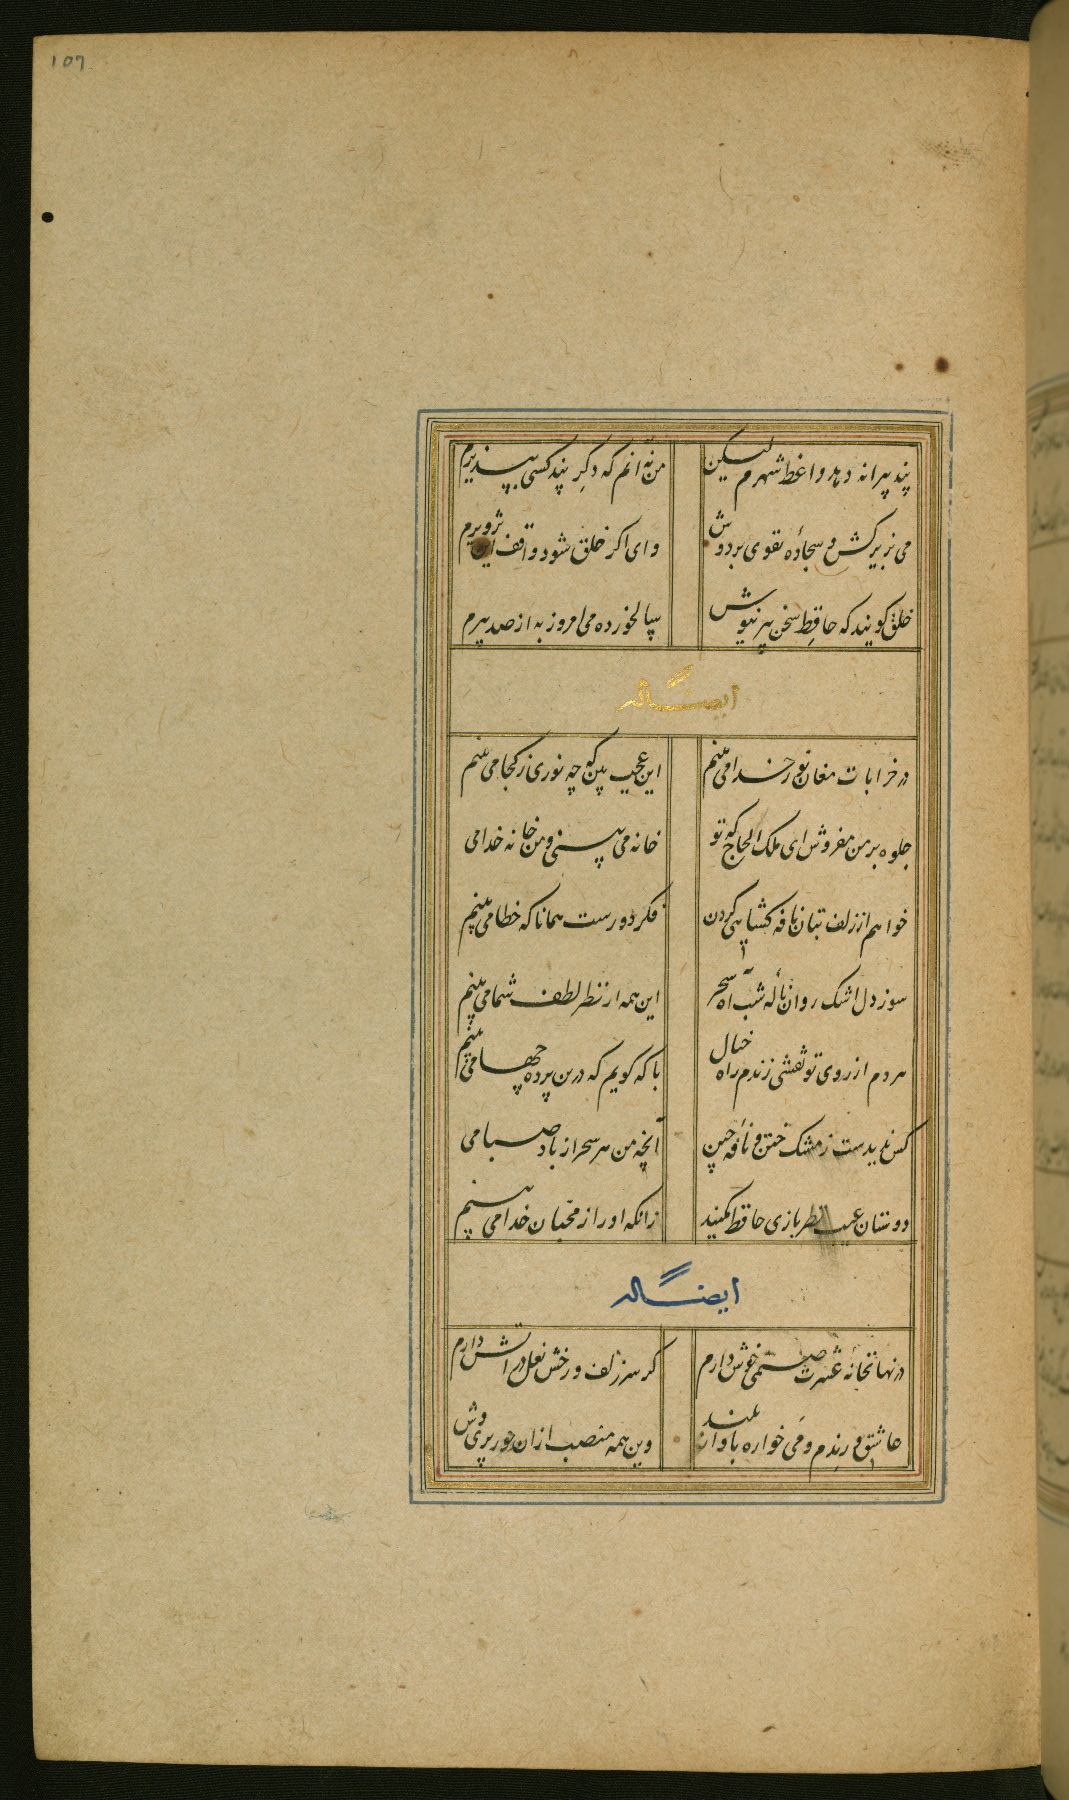 107
پند پیرانه دهد واعظ شهرم لیکن من نه آنم که دگر پند کسی بپذیرم
می بزیر کش و سجادهٔ تقوی بر دوش وای اگر خلق شود واقف این تزویرم
خلق گویند که حافظ سخن پیر نیوش سالخورده می امروز به از صد پیرم
ایضاً له
در خرابات مغان نور خدا می بینم این عجب بین که چه نوری ز کجا می بینم
جلوه بر من مفروش ای ملک الحاج که تو خانه می بینی و من خانه خدا می
خواهم از زلف بتان نافه کشایی کردن فکر دورست همانا که خطا می بینم
سوز دل اشک روان نالهٔ شب آه سحر این همه از نظر لطف شما می بینم
هر دم از روی تو نقشی زندم راه خیال با که گویم که درین پرده چها می بینم
کس ندیدست ز مشک ختن و نافهٔ چین آنچه من هر سحر از باد صبا می
دوستان عیب نظربازی حافظ مکنید زانکه او را ز محبان خدا می بینم
ایضاً له
در نهانخانهٔ عشرت صنمی خوش دارم کز سر زلف و رخش نعل در آتش دارم
عاشق و رندم و می خواره باواز بلند وین همه منصب از ان حور پری وش